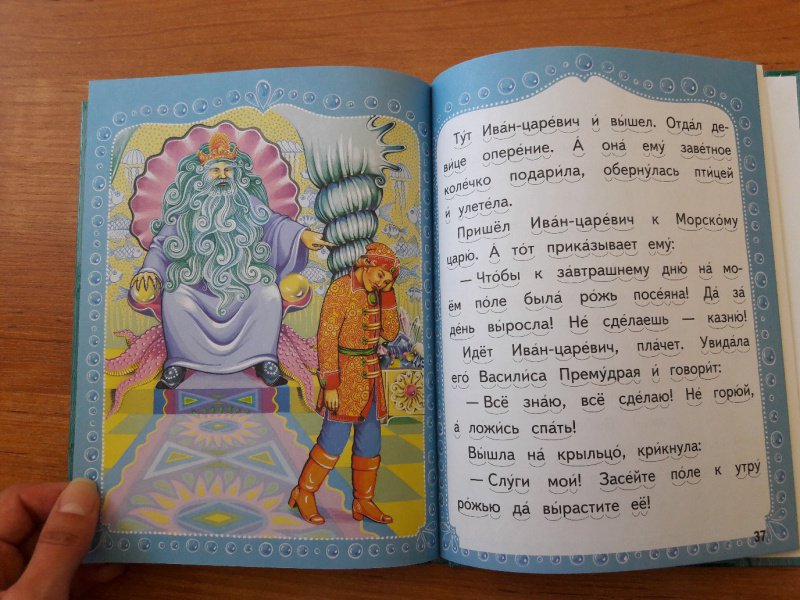 Ту́т Ива́н-царе́вич и́ вы́шел. Отда́л де-
ви́це опере́ние. А́ она́ ему́ заве́тное
коле́чко подари́ла, оберну́лась пти́цей
и́ улете́ла.
Пришёл Ива́н-царе́вич к Морско́му
царю́. А́ то́т прика́зывает ему́:
— Что́бы к за́втрашнему дню́ на́ мо-
ём по́ле была́ ро́жь посе́яна! Да́ за́
де́нь вы́росла! Не́ сде́лаешь — казню́!
Идёт Ива́н-царе́вич, пла́чет. Увида́ла
его́ Васили́са Прему́драя и́ говори́т:
— Всё зна́ю, всё сде́лаю! Не́ горю́й,
а́ ложи́сь спа́ть!
Вы́шла на́ крыльцо́, кри́кнула:
— Слу́ги мои́! Засе́йте по́ле к утру́
ро́жью да́ вы́растите её!
37